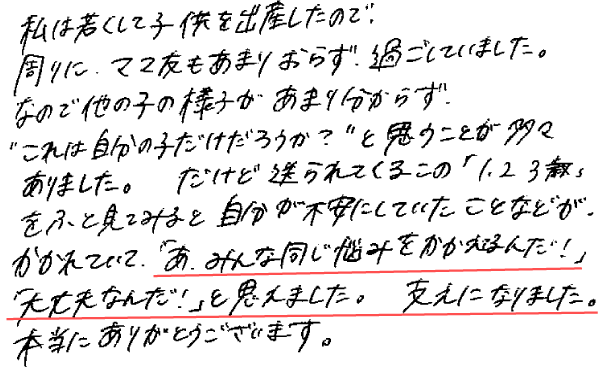 私は若くして子供を出産したので、
周りに、ママ友もあまりおらず、過ごしていました。
なので他の子の様子があまり分からず、
"これは自分の子だけだろうか？"と思うことが多々
ありました。 だけど送られてくるこの「1.2.3歳」
をふと見てみると自分が不安にしていたことなどが、
かかれていて、「あ、みんな同じ悩みをかかえるんだ！」
「大丈夫なんだ！」と思えました。 支えになりました。
本当にありがとうございます。